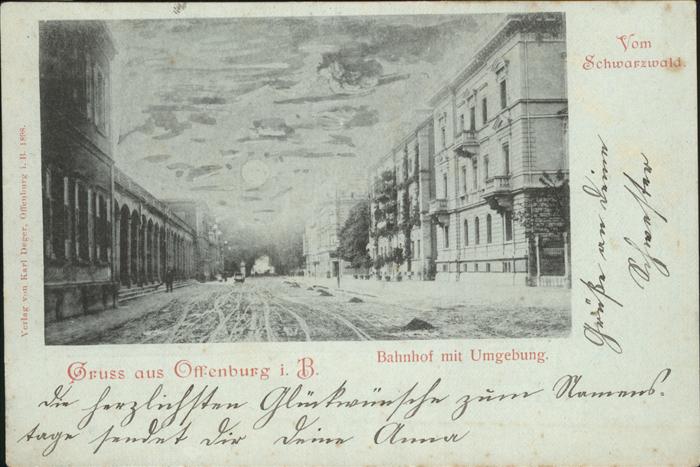 Vom
Schwarzwald.
Verlag von Karl Deger, Offenburg i. B. 1898.
Gruss aus Offenburg i. B.
Bahnhof mit Umgebung.
die herzlichsten Glückwünsche zum Namens-
tage sendet Dir Deine Anna
Grüße an Deine